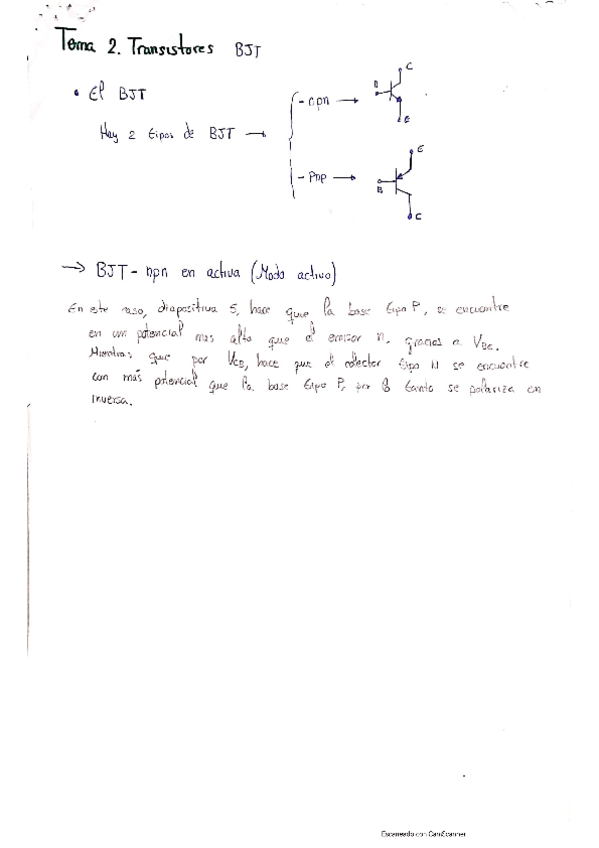 Tema 2. Transistores BJT
• El BJT
Hay 2 tipos de BJT →
- npn →
B
C
E
- Pnp →
E
B
C
→ BJT - npn en activa (Modo activo)
En este caso, diapositiva 5, hace que la base tipo P, se encuentre
en un potencial mas alto que el emisor n. gracias a VBE.
Mientras que por VCB, hace que el colector tipo N se encuentre
con más potencial que la base tipo P, por lo tanto se polariza en
inversa.
Escaneado con CamScanner